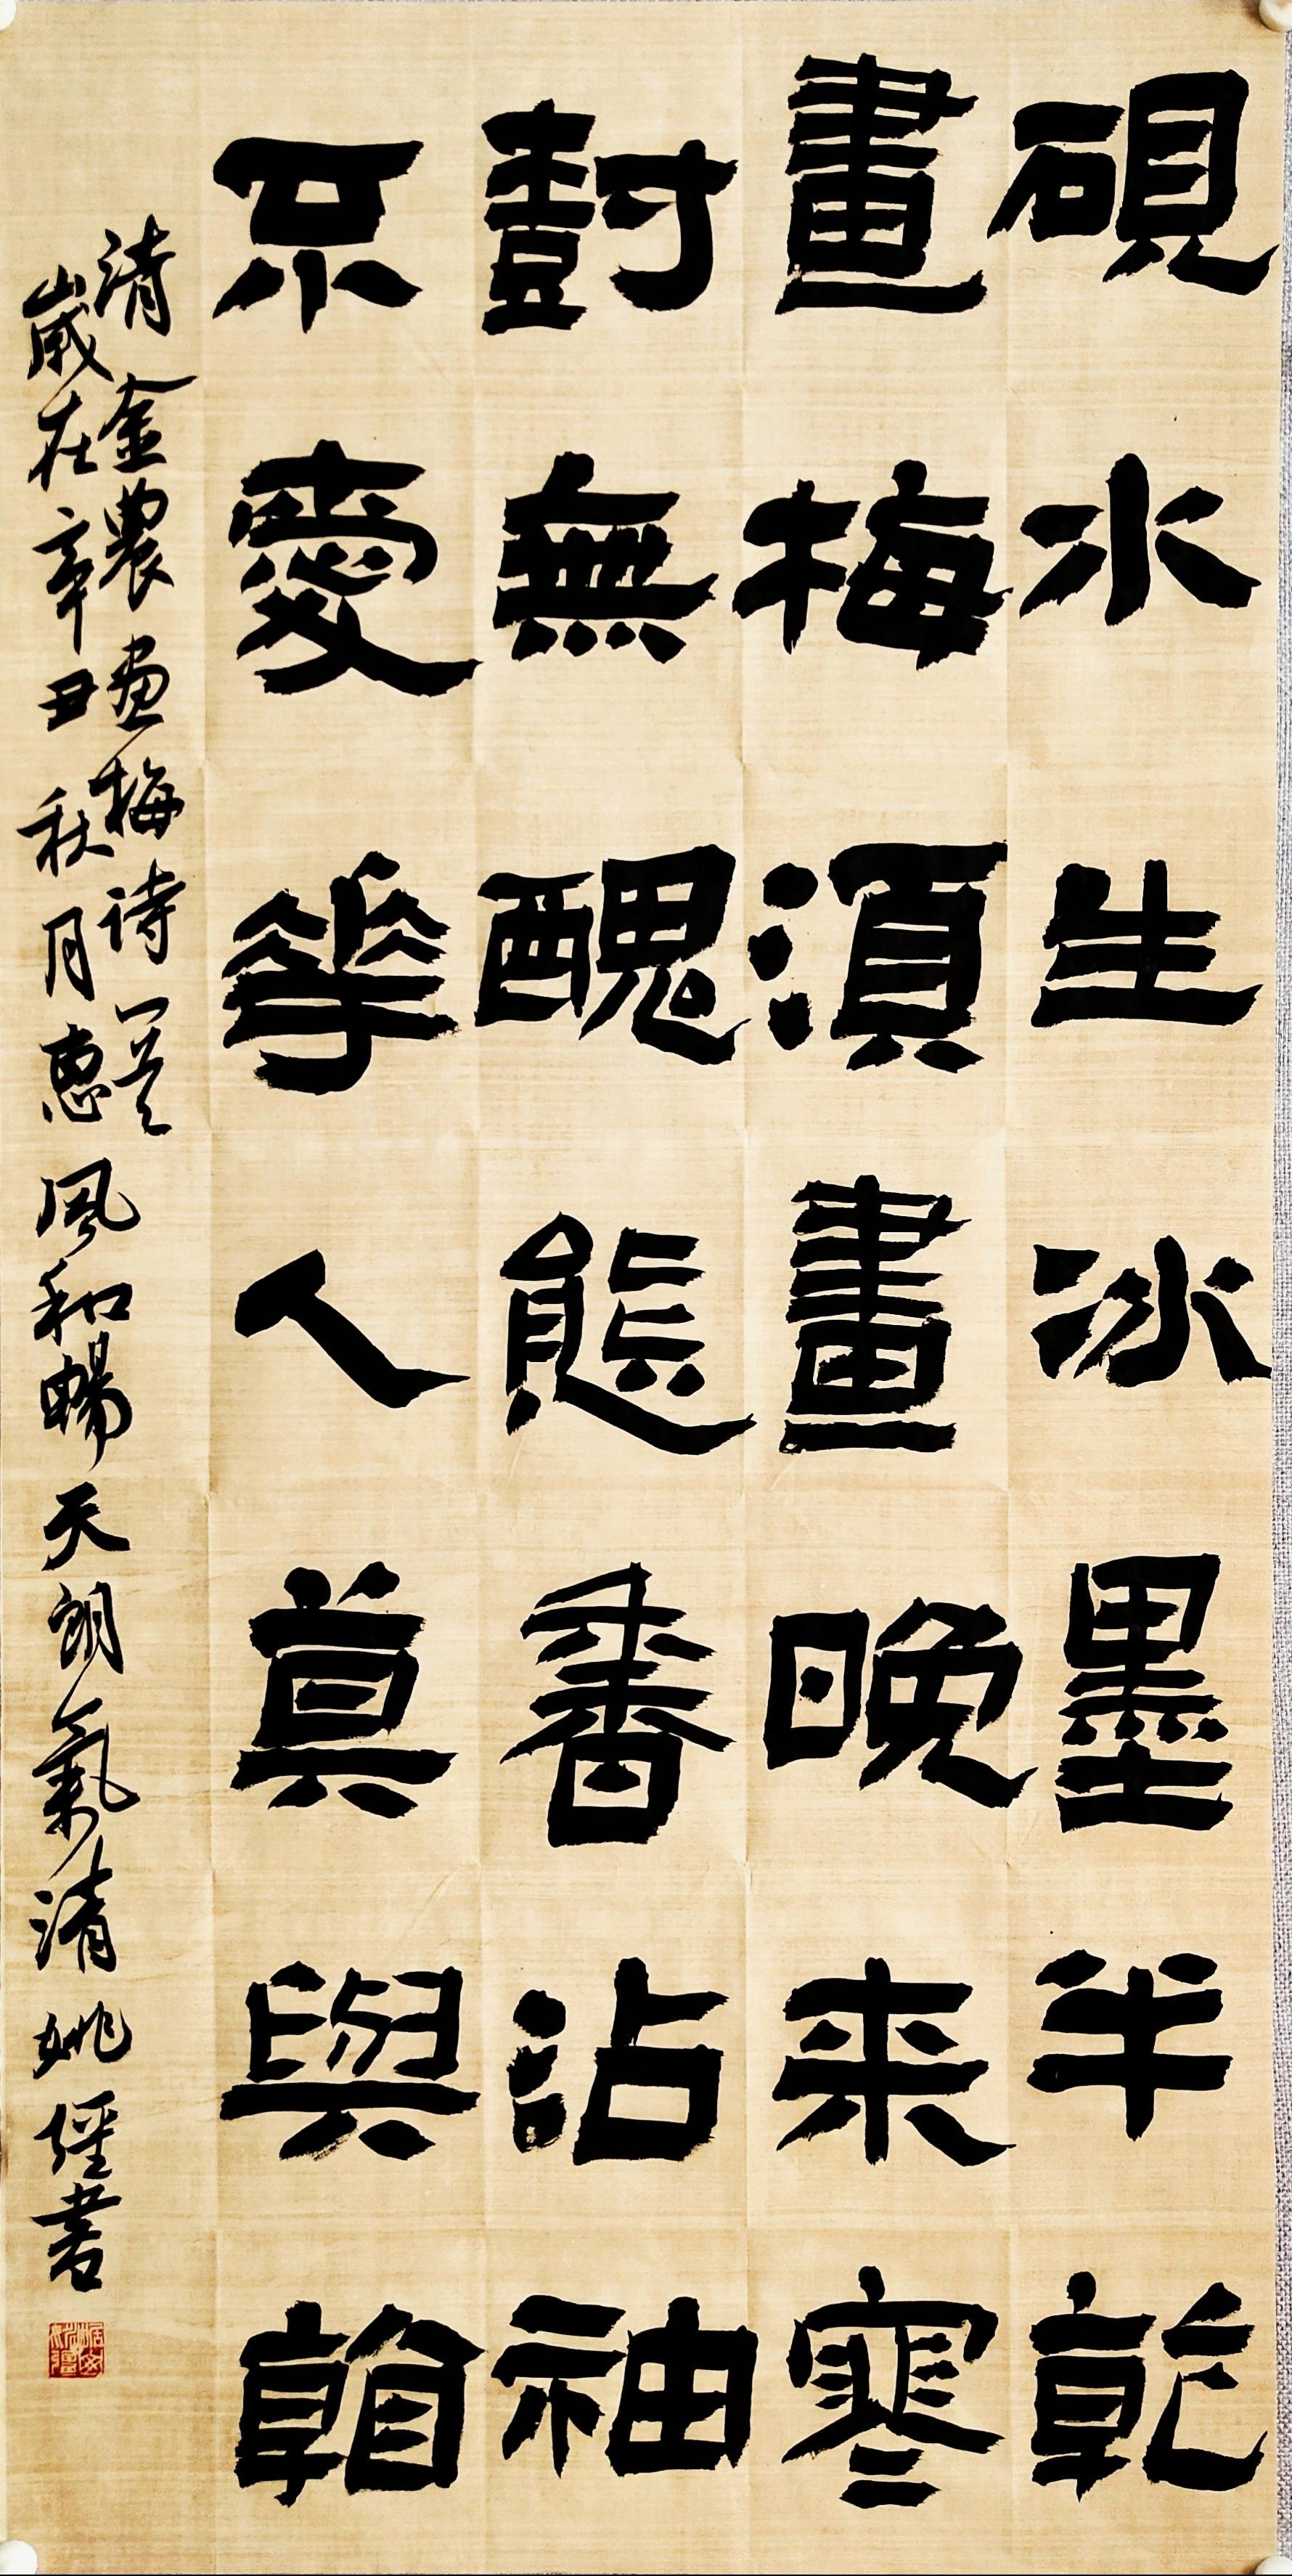 硯水生冰墨半乾
畫梅須畫晚来寒
尌無醜態香沾袖
不愛華人莫與看
清金農画梅诗一首
歲在辛丑秋月惠風和暢天朗氣清姚經書